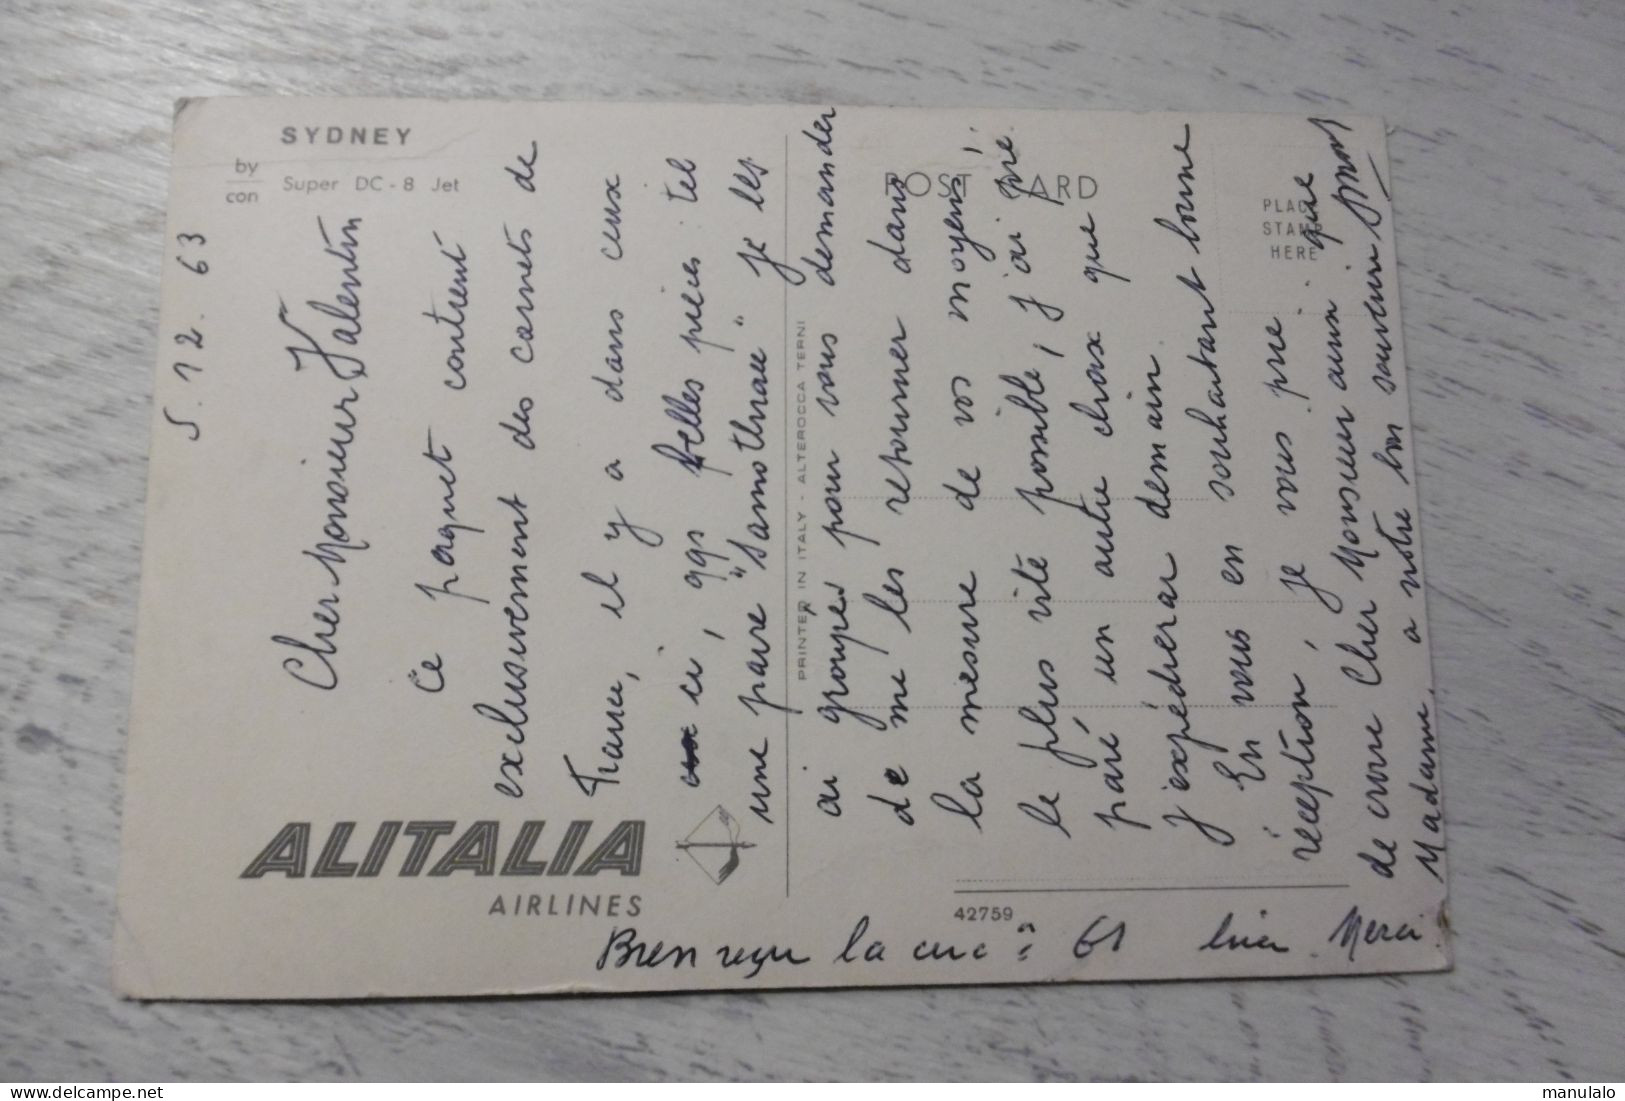 SYDNEY
by
con
Super DC - 8 Jet
ALITALIA
AIRLINES
POST CARD
PLACE
STAMP
HERE
PRINTED IN ITALY - ALTEROCCA TERNI
42759
5.12.63
Cher Monsieur Valentin
Ce paquet contient
exclusivement des carnets de
France, il y a dans ceux
ci, qqs belles pièces tel
une paire "Samothrace" je les
ai groupés pour vous demander
de me les retourner dans
la mesure de vos moyens,
le plus vite possible, j'ai pré
paré un autre choix que
j'expédierai demain.
En vous en souhaitant bonne
réception, je vous prie
de croire Cher Monsieur ainsi que
Madame, à notre bon souvenir
Bien reçu la circ: 61 hier. Merci.
manulalo